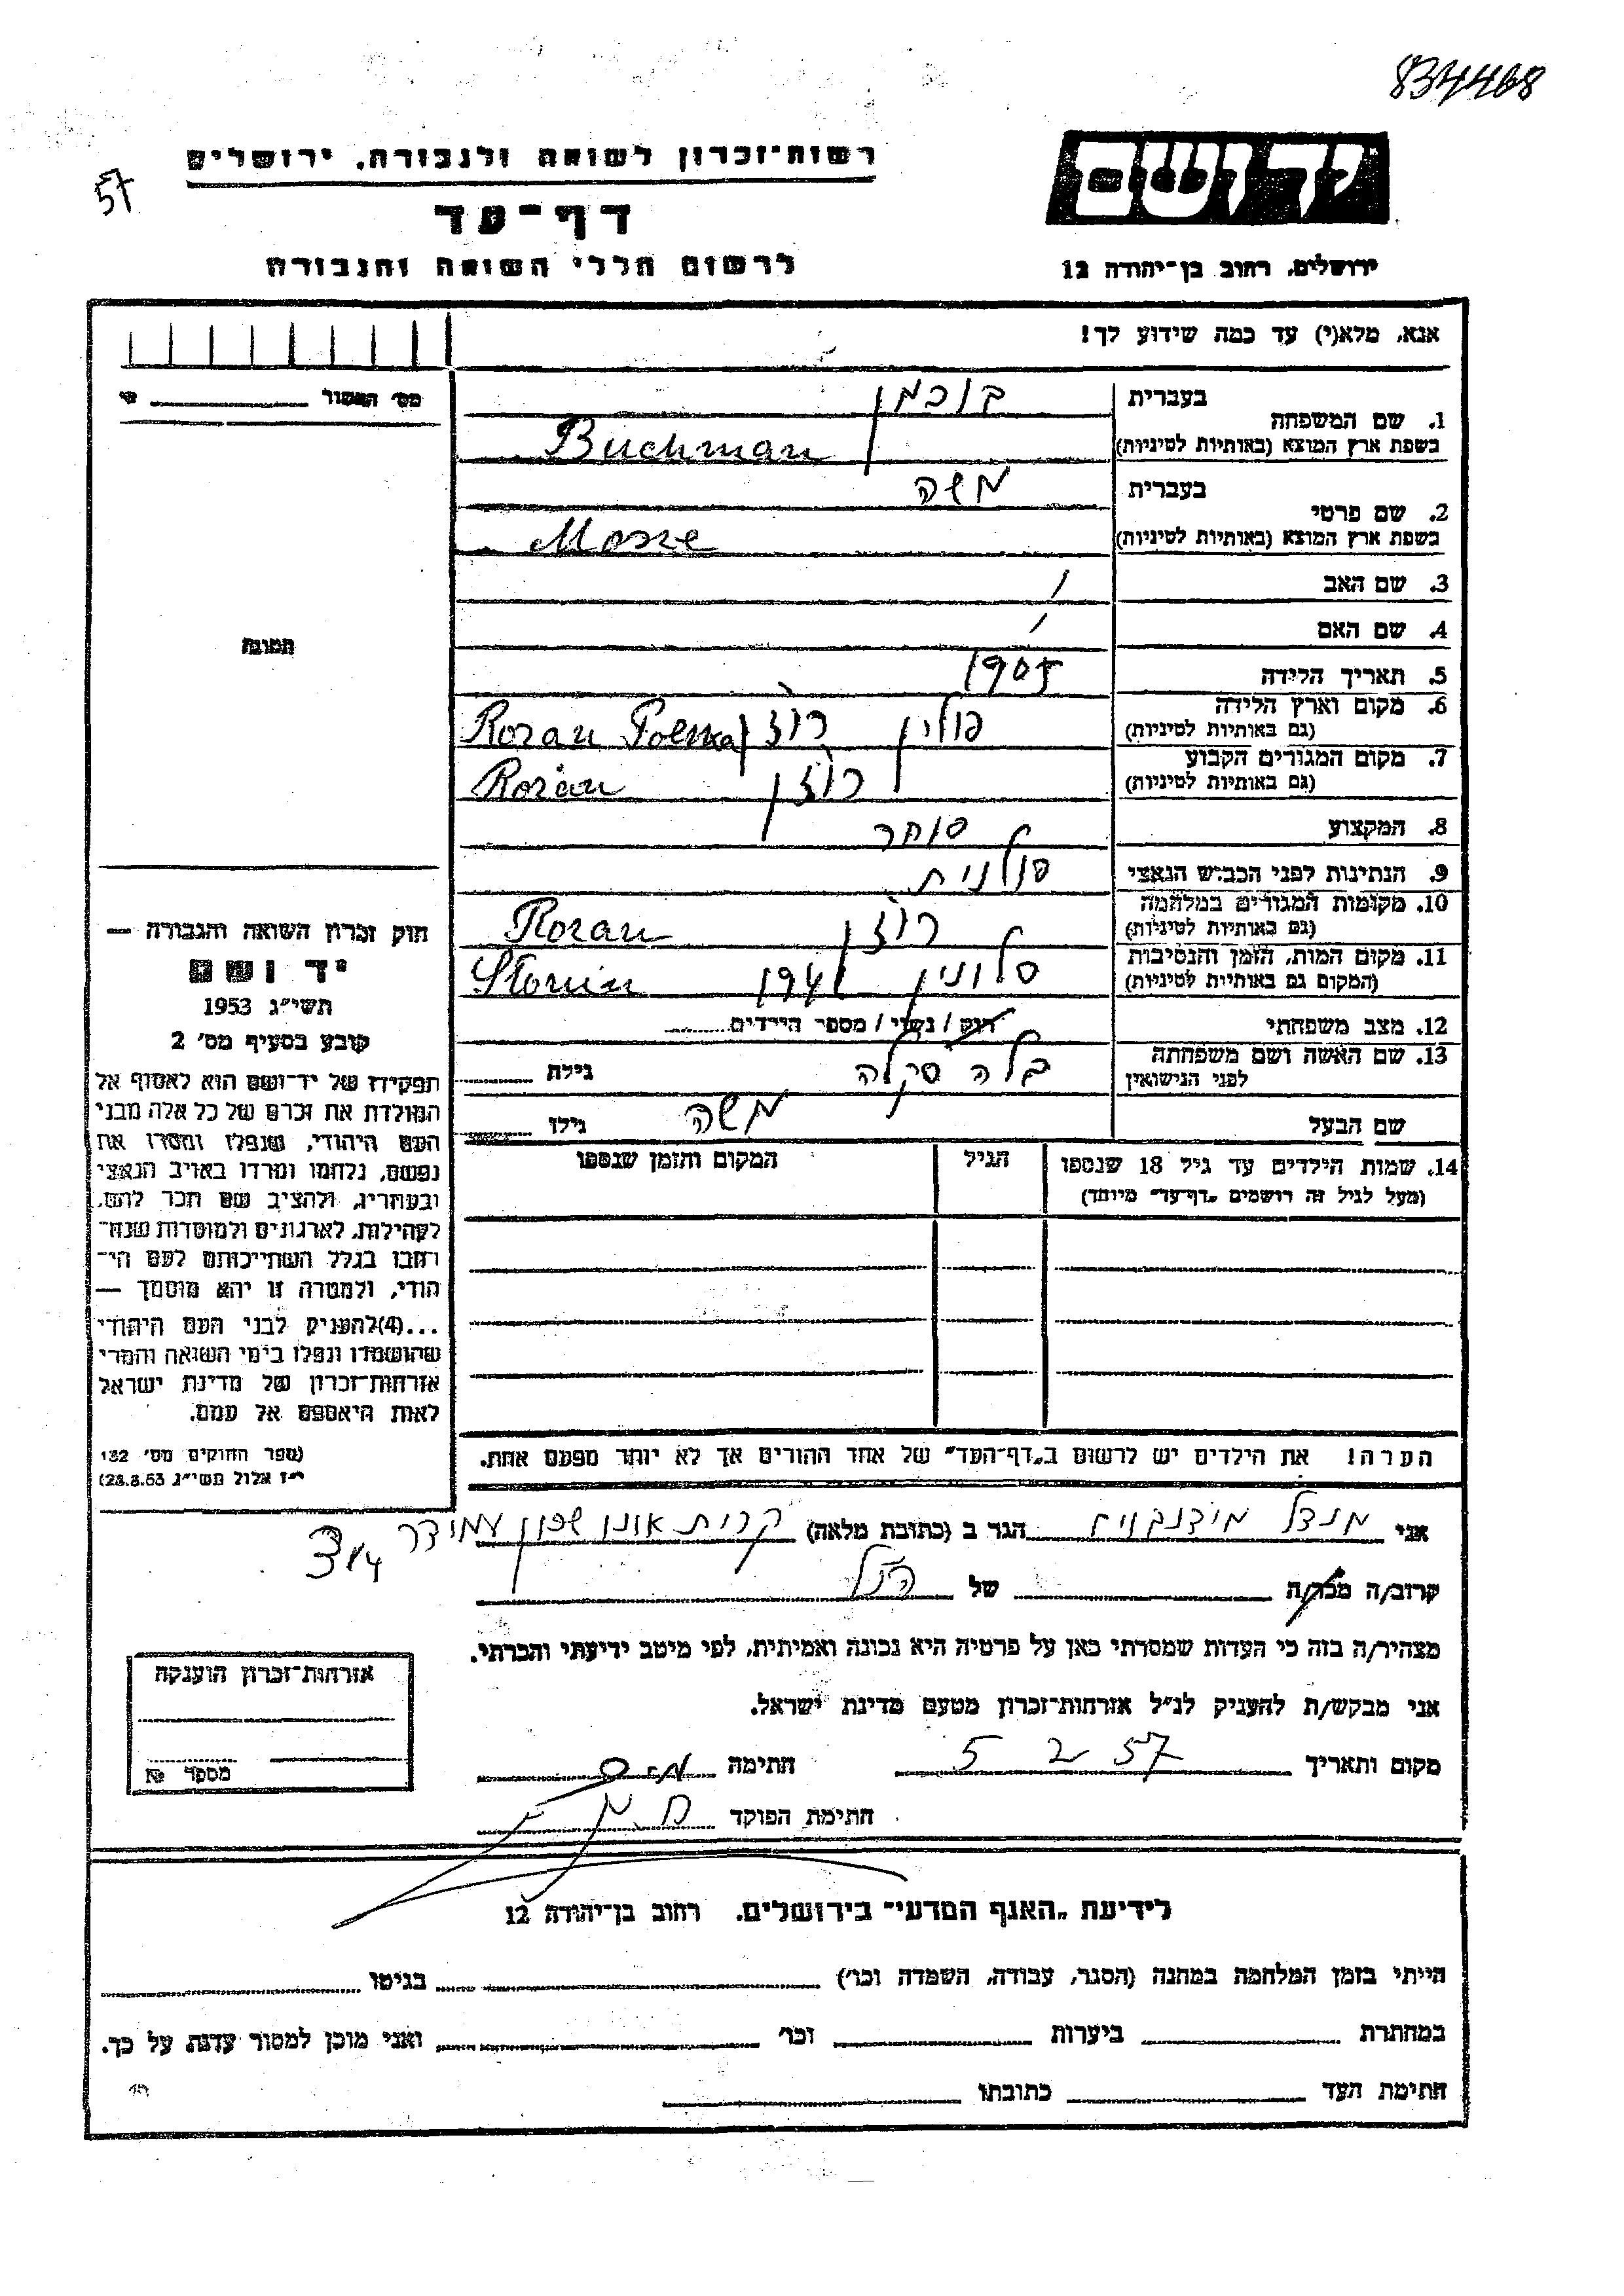 834468
57
רשות־זכרון לשואה ולגבורה, ירושלים
דף־עד
לרשום חללי השואה והגבורה
יד ושם
ירושלים, רחוב בן־יהודה 12
אנא, מלא(י) עד כמה שידוע לך!
מס' האשור
1. שם המשפחה בעברית בוכמן
בשפת ארץ המוצא (באותיות לטיניות) Buchman
2. שם פרטי בעברית משה
בשפת ארץ המוצא (באותיות לטיניות) Mosze
3. שם האב /
4. שם האם /
5. תאריך הלידה 1905
6. מקום וארץ הלידה (גם באותיות לטיניות) פולין רוז'ן Rozan Polska
7. מקום המגורים הקבוע (גם באותיות לטיניות) רוז'ן Rożan
8. המקצוע סוחר
9. הנתינות לפני הכבוש הנאצי פולנית
10. מקומות המגורים במלחמה (גם באותיות לטיניות) רוזן Rozan
11. מקום המות, הזמן והנסיבות (המקום גם באותיות לטיניות) סלונין 1941 Słonin
12. מצב משפחתי רוק / נשוי / מספר הילדים
13. שם האשה ושם משפחתה לפני הנישואין בלה גילה
שם הבעל משה גילו
14. שמות הילדים עד גיל 18 שנספו הגיל המקום והזמן שנספו
(מעל לגיל זה רושמים „דף־עד" מיוחד)
הערה! את הילדים יש לרשום ב„דף־העד" של אחד ההורים אך לא יותר מפעם אחת.
תמונה
חוק זכרון השואה והגבורה —
יד ושם
תשי"ג 1953
קובע בסעיף מס' 2
תפקידו של יד־ושם הוא לאסוף אל
המולדת את זכרם של כל אלה מבני
העם היהודי, שנפלו ומסרו את
נפשם, נלחמו ומרדו באויב הנאצי
ובעוזריו, ולהציב שם וזכר להם,
לקהילות, לארגונים ולמוסדות שנח־
רבו בגלל השתייכותם לעם הי־
הודי, ולמטרה זו יהא מוסמך —
...(4)להעניק לבני העם היהודי
שהושמדו ונפלו בימי השואה והמרי
אזרחות־זכרון של מדינת ישראל
לאות היאספם אל עמם.
(ספר החוקים מס' 132
י"ז אלול תשי"ג 28.8.53)
אני מנדל הגר ב (כתובת מלאה) קרית אונו שכון עמידר 314
קרוב/ה מכר/ה של הנ"ל
מצהיר/ה בזה כי העדות שמסרתי כאן על פרטיה היא נכונה ואמיתית, לפי מיטב ידיעתי והכרתי.
אני מבקש/ת להעניק לנ"ל אזרחות־זכרון מטעם מדינת ישראל.
מקום ותאריך 5 2 57 חתימה
חתימת הפוקד
אזרחות־זכרון הוענקה
מספר №
לידיעת „האגף המדעי" בירושלים, רחוב בן־יהודה 12
הייתי בזמן המלחמה במחנה (הסגר, עבודה, השמדה וכו') בגיטו
במחתרת ביערות וכו' ואני מוכן למסור עדות על כך.
חתימת העד כתובתו